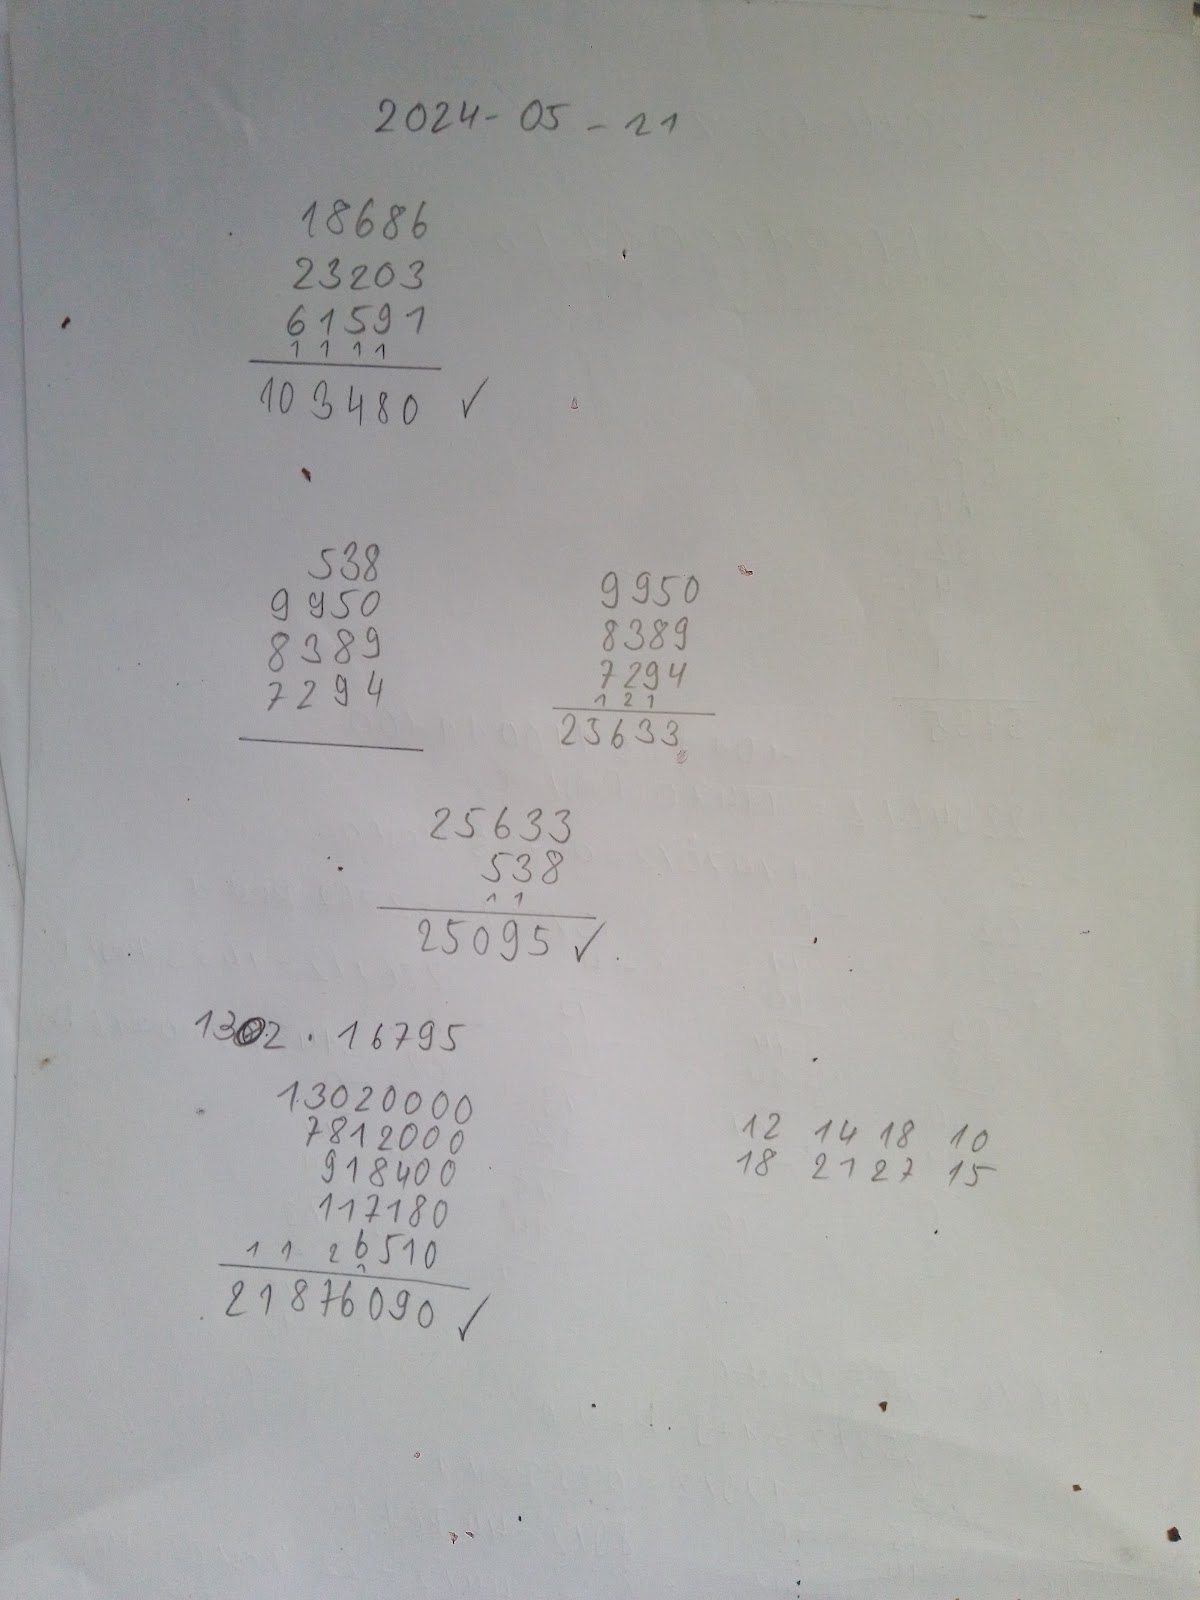 2024-05-11
18686
23203
61591
1 1 1 1
103480 ✓
538
9950
8389
7294
9950
8389
7294
1 2 1
25633
25633
538
1 1
25095 ✓
1302 · 16795
13020000
7812000
918400
117180
1 1 2 6510
1
21876090 ✓
12 14 18 10
18 21 27 15